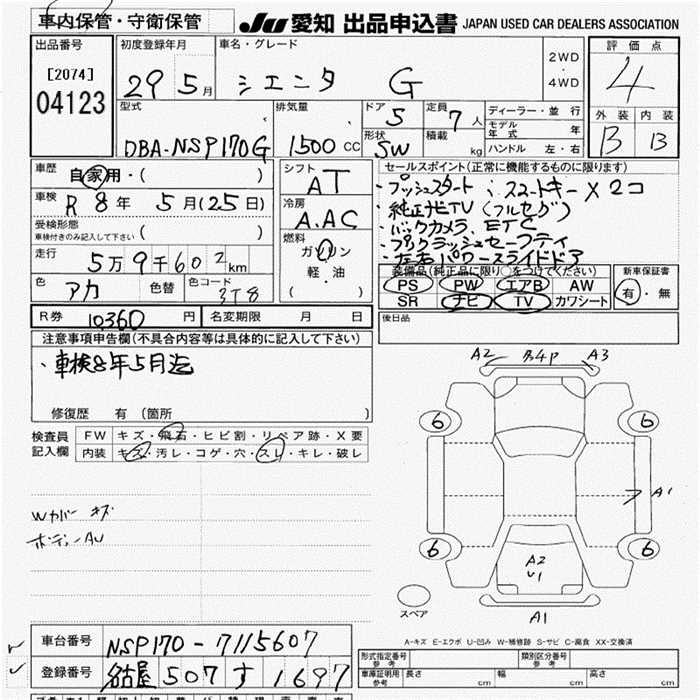 車内保管・守衛保管
JU 愛知 出品申込書 JAPAN USED CAR DEALERS ASSOCIATION
出品番号 初度登録年月 車名・グレード 2WD ・ 4WD 評価点
[2074] 04123 29 5月 シエンタ G 4
型式 排気量 ドア 5 定員 7人 ディーラー・並行 外装 内装
DBA-NSP170G 1500 CC 形状 SW 積載 kg モデル年式 年 B B
ハンドル 左・右
車歴 自家用・( ) シフト AT セールスポイント(正常に機能するものに限り)
車検 R8年 5月(25日) 冷房 A.AC ・プッシュスタート ・スマートキー×2コ
受検形態 車検付きのみ記入して下さい ( ) 燃料 ・純正ナビTV(フルセグ)
走行 5万9千602km ガソリン ・バックカメラ、ETC
軽・油 ・プリクラッシュセーフティ
( ) ・左右パワースライドドア
色 アカ 色替 色コード 3T8
装備品(純正品に限り○をつけてください) 新車保証書
PS PW エアB AW 有・無
SR ナビ TV カワシート
R券 10360円 名変期限 月 日 後日品
注意事項申告欄(不具合内容等は具体的に記入して下さい)
・車検8年5月迄
修復歴 有 (箇所 )
検査員記入欄 FW キズ・飛石・ヒビ割・リペア跡・X要
内装 キズ・汚レ・コゲ・穴・スレ・キレ・破レ
Wカバー キズ
ボディーAU
A2 B4P A3
6 6
A1
6 6
A2
U1
スペア A1
A-キズ E-エクボ U-凹み W-補修跡 S-サビ C-腐食 XX-交換済
車台番号 NSP170-7115607
登録番号 名古屋 507 す 1697
型式指定番号 参考 類別区分番号 参考
車庫証明用 参考 長さ cm 幅 cm 高さ cm